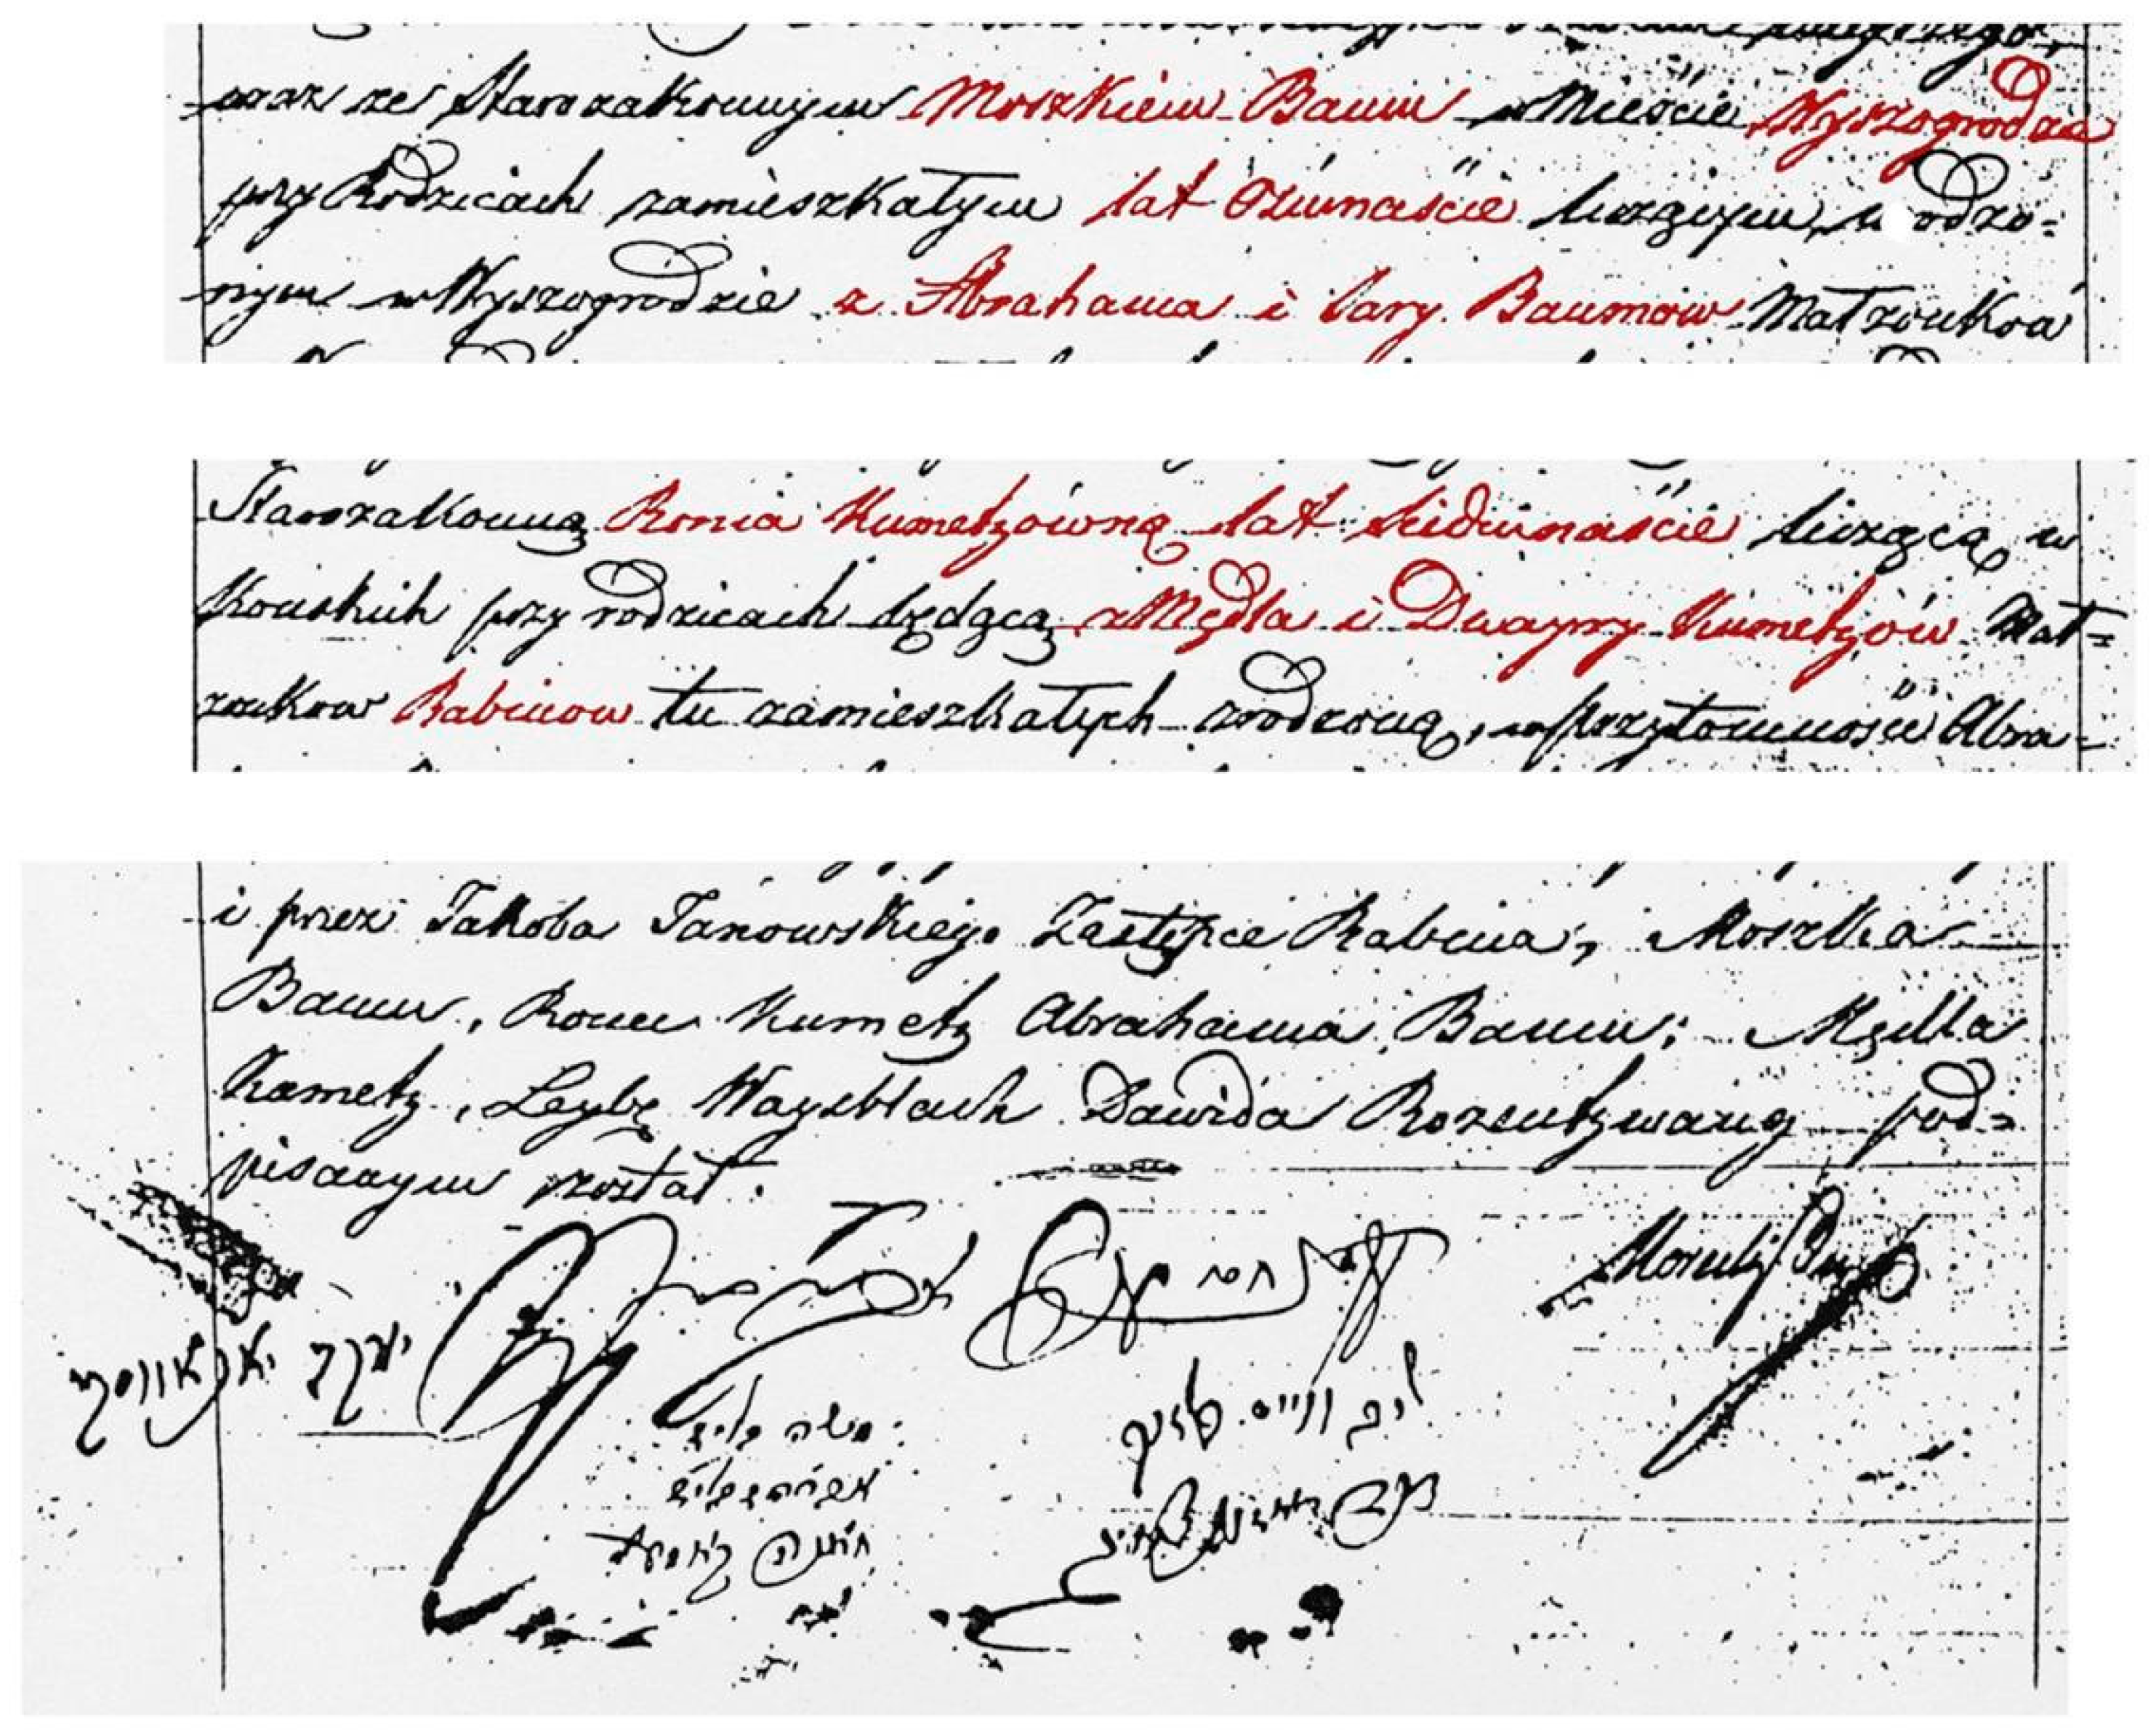 oraz ze Starozakonnym Moszkiem Baum w Mieście Wyszogrodzie
przy Rodzicach zamieszkałym lat Ośmnaście liczącym, urodzo=
nym w Wyszogrodzie z Abrahama i Sary Baumow Małżonków
Starozakonną Ronia Kumetzówną lat siedmnaście liczącą w
Końskich przy rodzicach będącą z Mędla i Dwayry Kumetzów Mał=
żonkow Rabinow tu zamieszkałych zrodzoną, w przytomności Abra=
i przez Jakoba Janowskiego Zastępce Rabina, Moszka
Baum, Ronee Kumetz Abrahama Baum; Mędla
Kametz, Leybę Wayzblach Dawida Rozentzwayg pod=
pisanym został.
יעקב יאנאווסקי
משה בוים
אברהם בוים
ליב ווייסבלאך